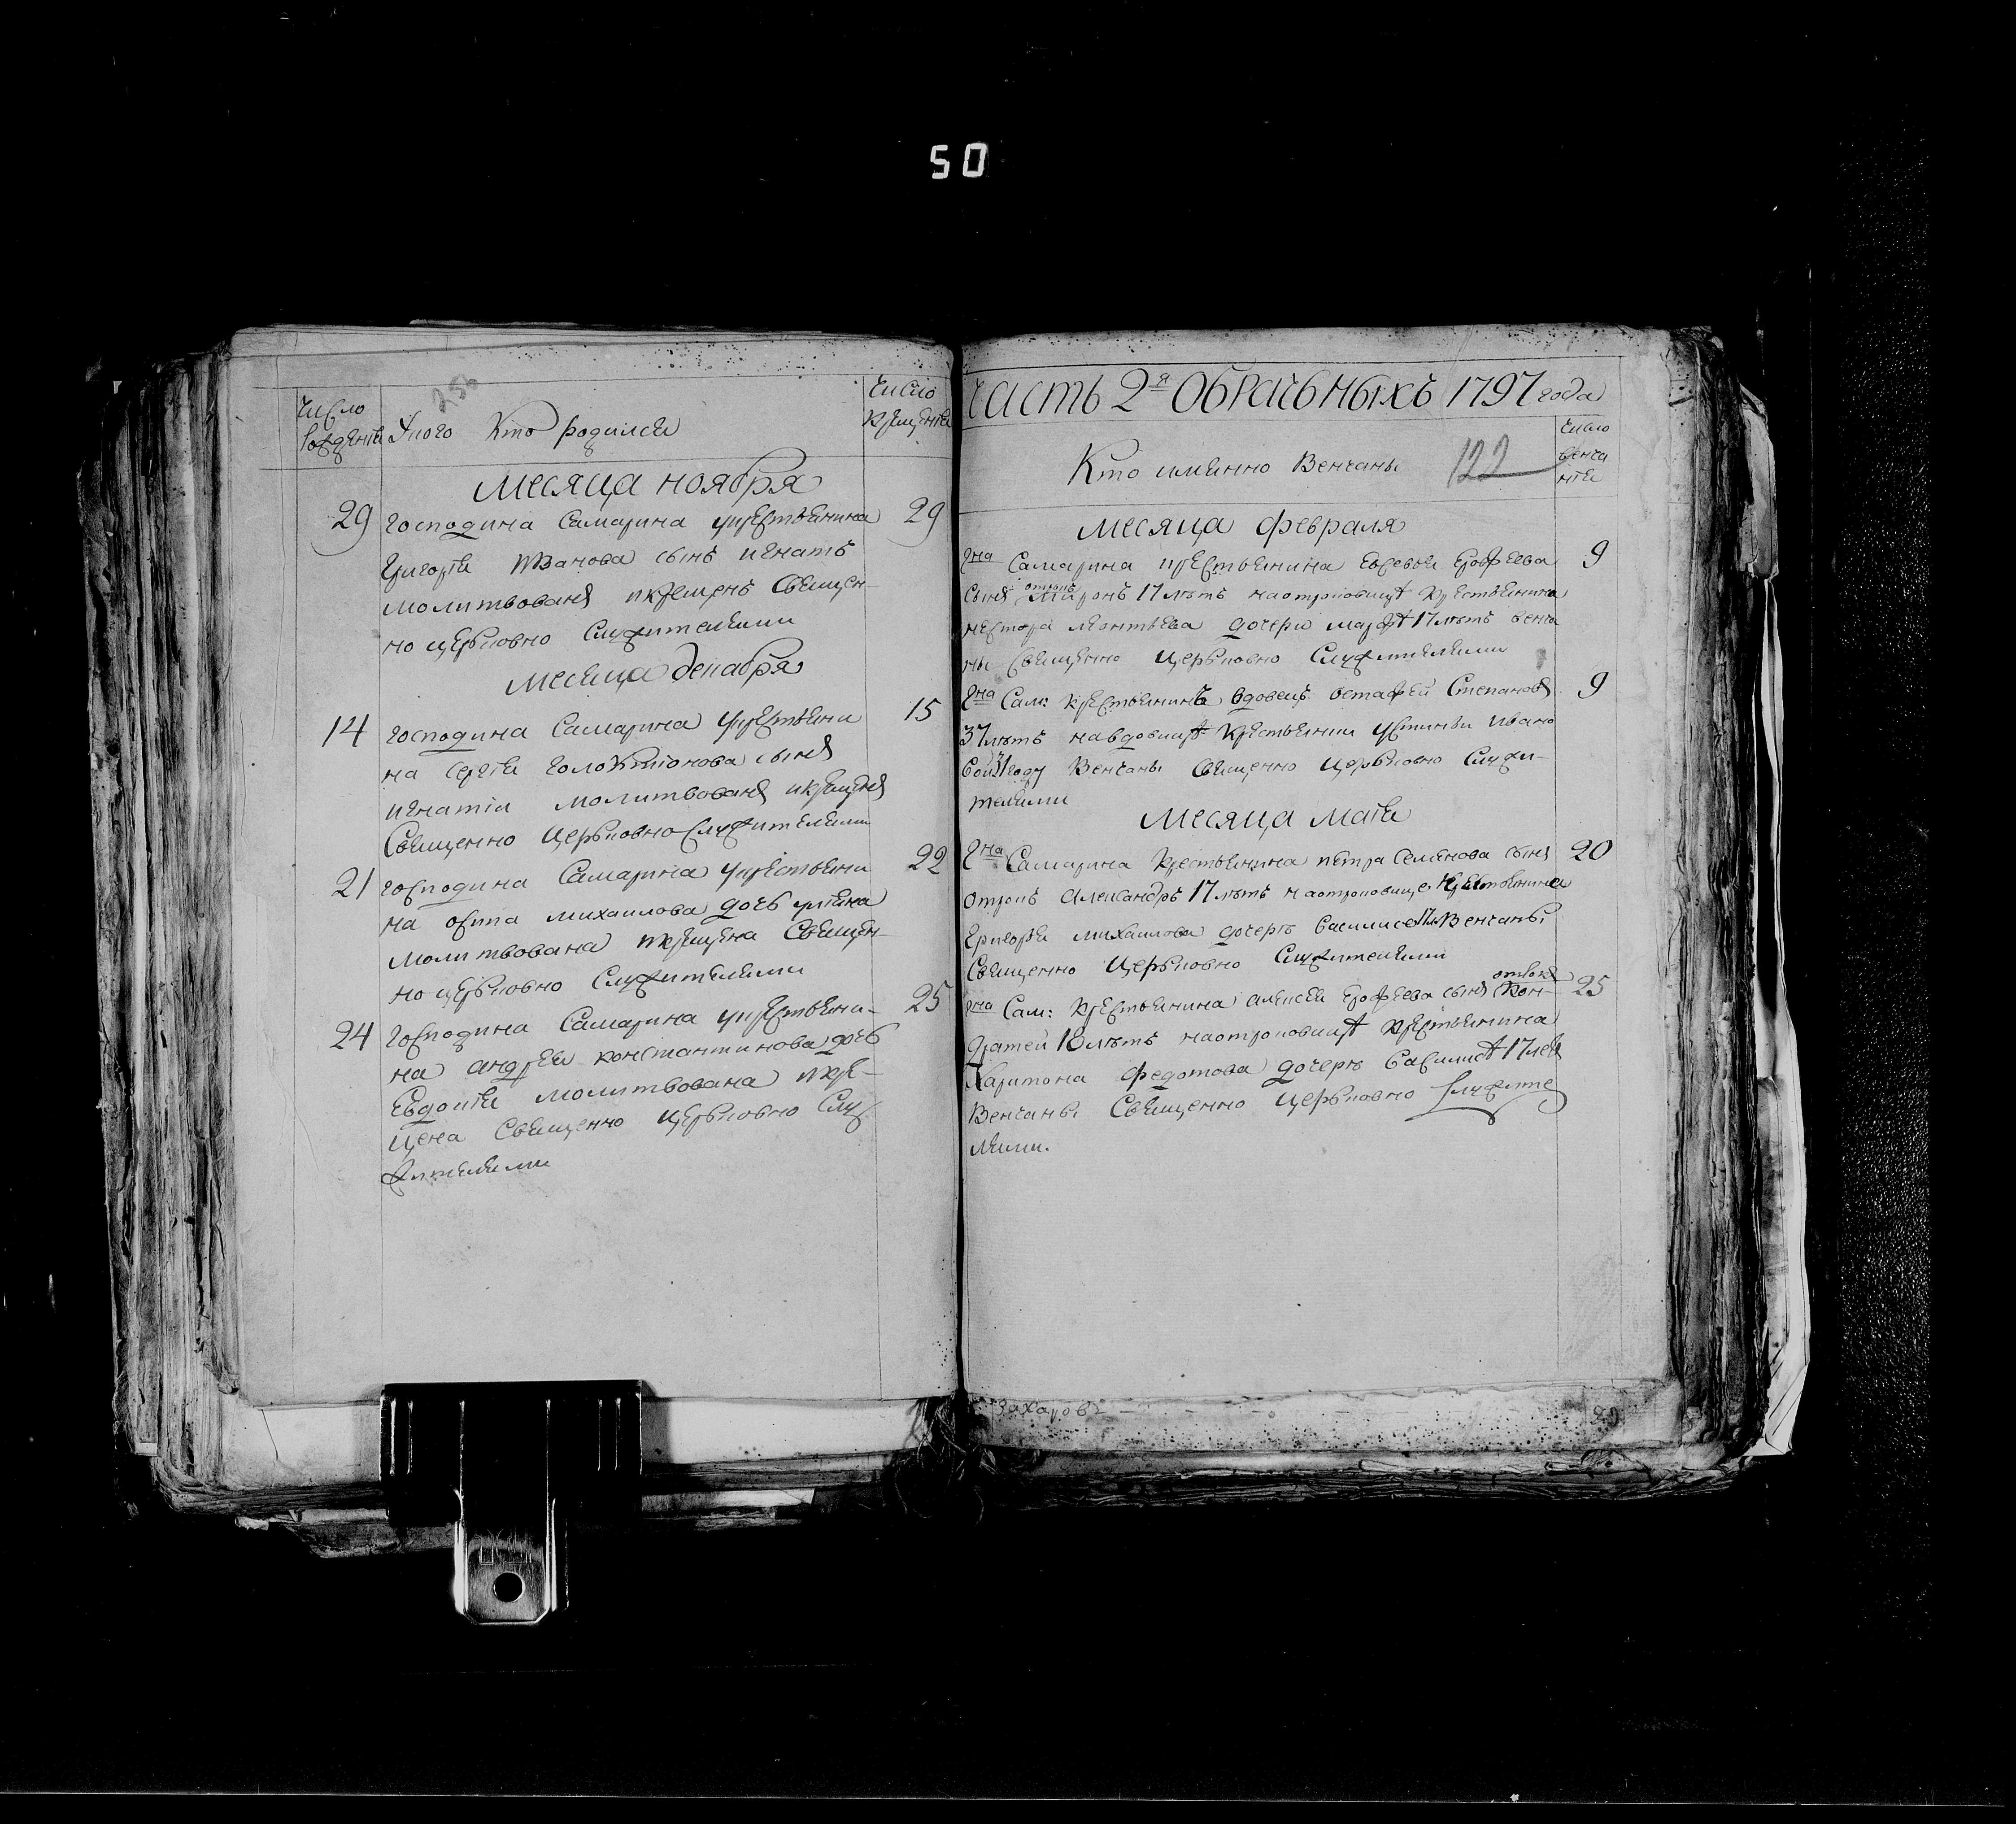 50
число рождения
У кого Кто родился
число крещения
месяца ноября
29 господина Самарина у крестьянина 29
Григория Иванова сынъ игнатъ
молитвованъ и крещенъ Священ-
но церьковно Служителями
месяца декабря
14 господина Самарина у крестьяни 15
на сергея сынъ
игнатіи молитвованъ и крещенъ
Священно Церьковно Служителями
21 господина Самарина у крестьяни 22
на осипа михаилова дочь
молитвована и крещена Священ-
но церьковно Служителями
24 господина Самарина у крестьяни- 25
на андрея константинова дочь
Евдокія молитвована и кре-
щена Священно церьковно Слу
жителями
часть 2я Обрачьныхъ 1797 года
Кто имянно Венчаны
122
число венча нія
месяца февраля
гна Самарина крестьянина Ерофеева 9
сынъ отрокъ миронъ 17 летъ на отроковице крестьянина
нестора леонтьева дочери марфе 17 летъ венча
ны Священно Церьковно Служителями
гна Сам: крестьянинъ вдовецъ остафей Степановъ 9
37 летъ на вдовице крестьянки устиньи ивано
вой 31 году Венчаны Священно Церьковно Служи-
телями
месяца маія
гна Самарина крестьянина петра Семенова сынъ 20
отрокъ Александръ 17 летъ на отроковице крестьянина
григорья михаилова дочерь василисе 17 ле Венчаны
Священно Церьковно Служителями
гна Сам: крестьянина алексея Ерофеева сынъ отрокъ Кон- 25
дратей 18 летъ на отроковице крестьянина
Харитона федотова дочерь Василисе 17 лет
Венчаны Священно Церьковно Служите
лями.
Захаровъ